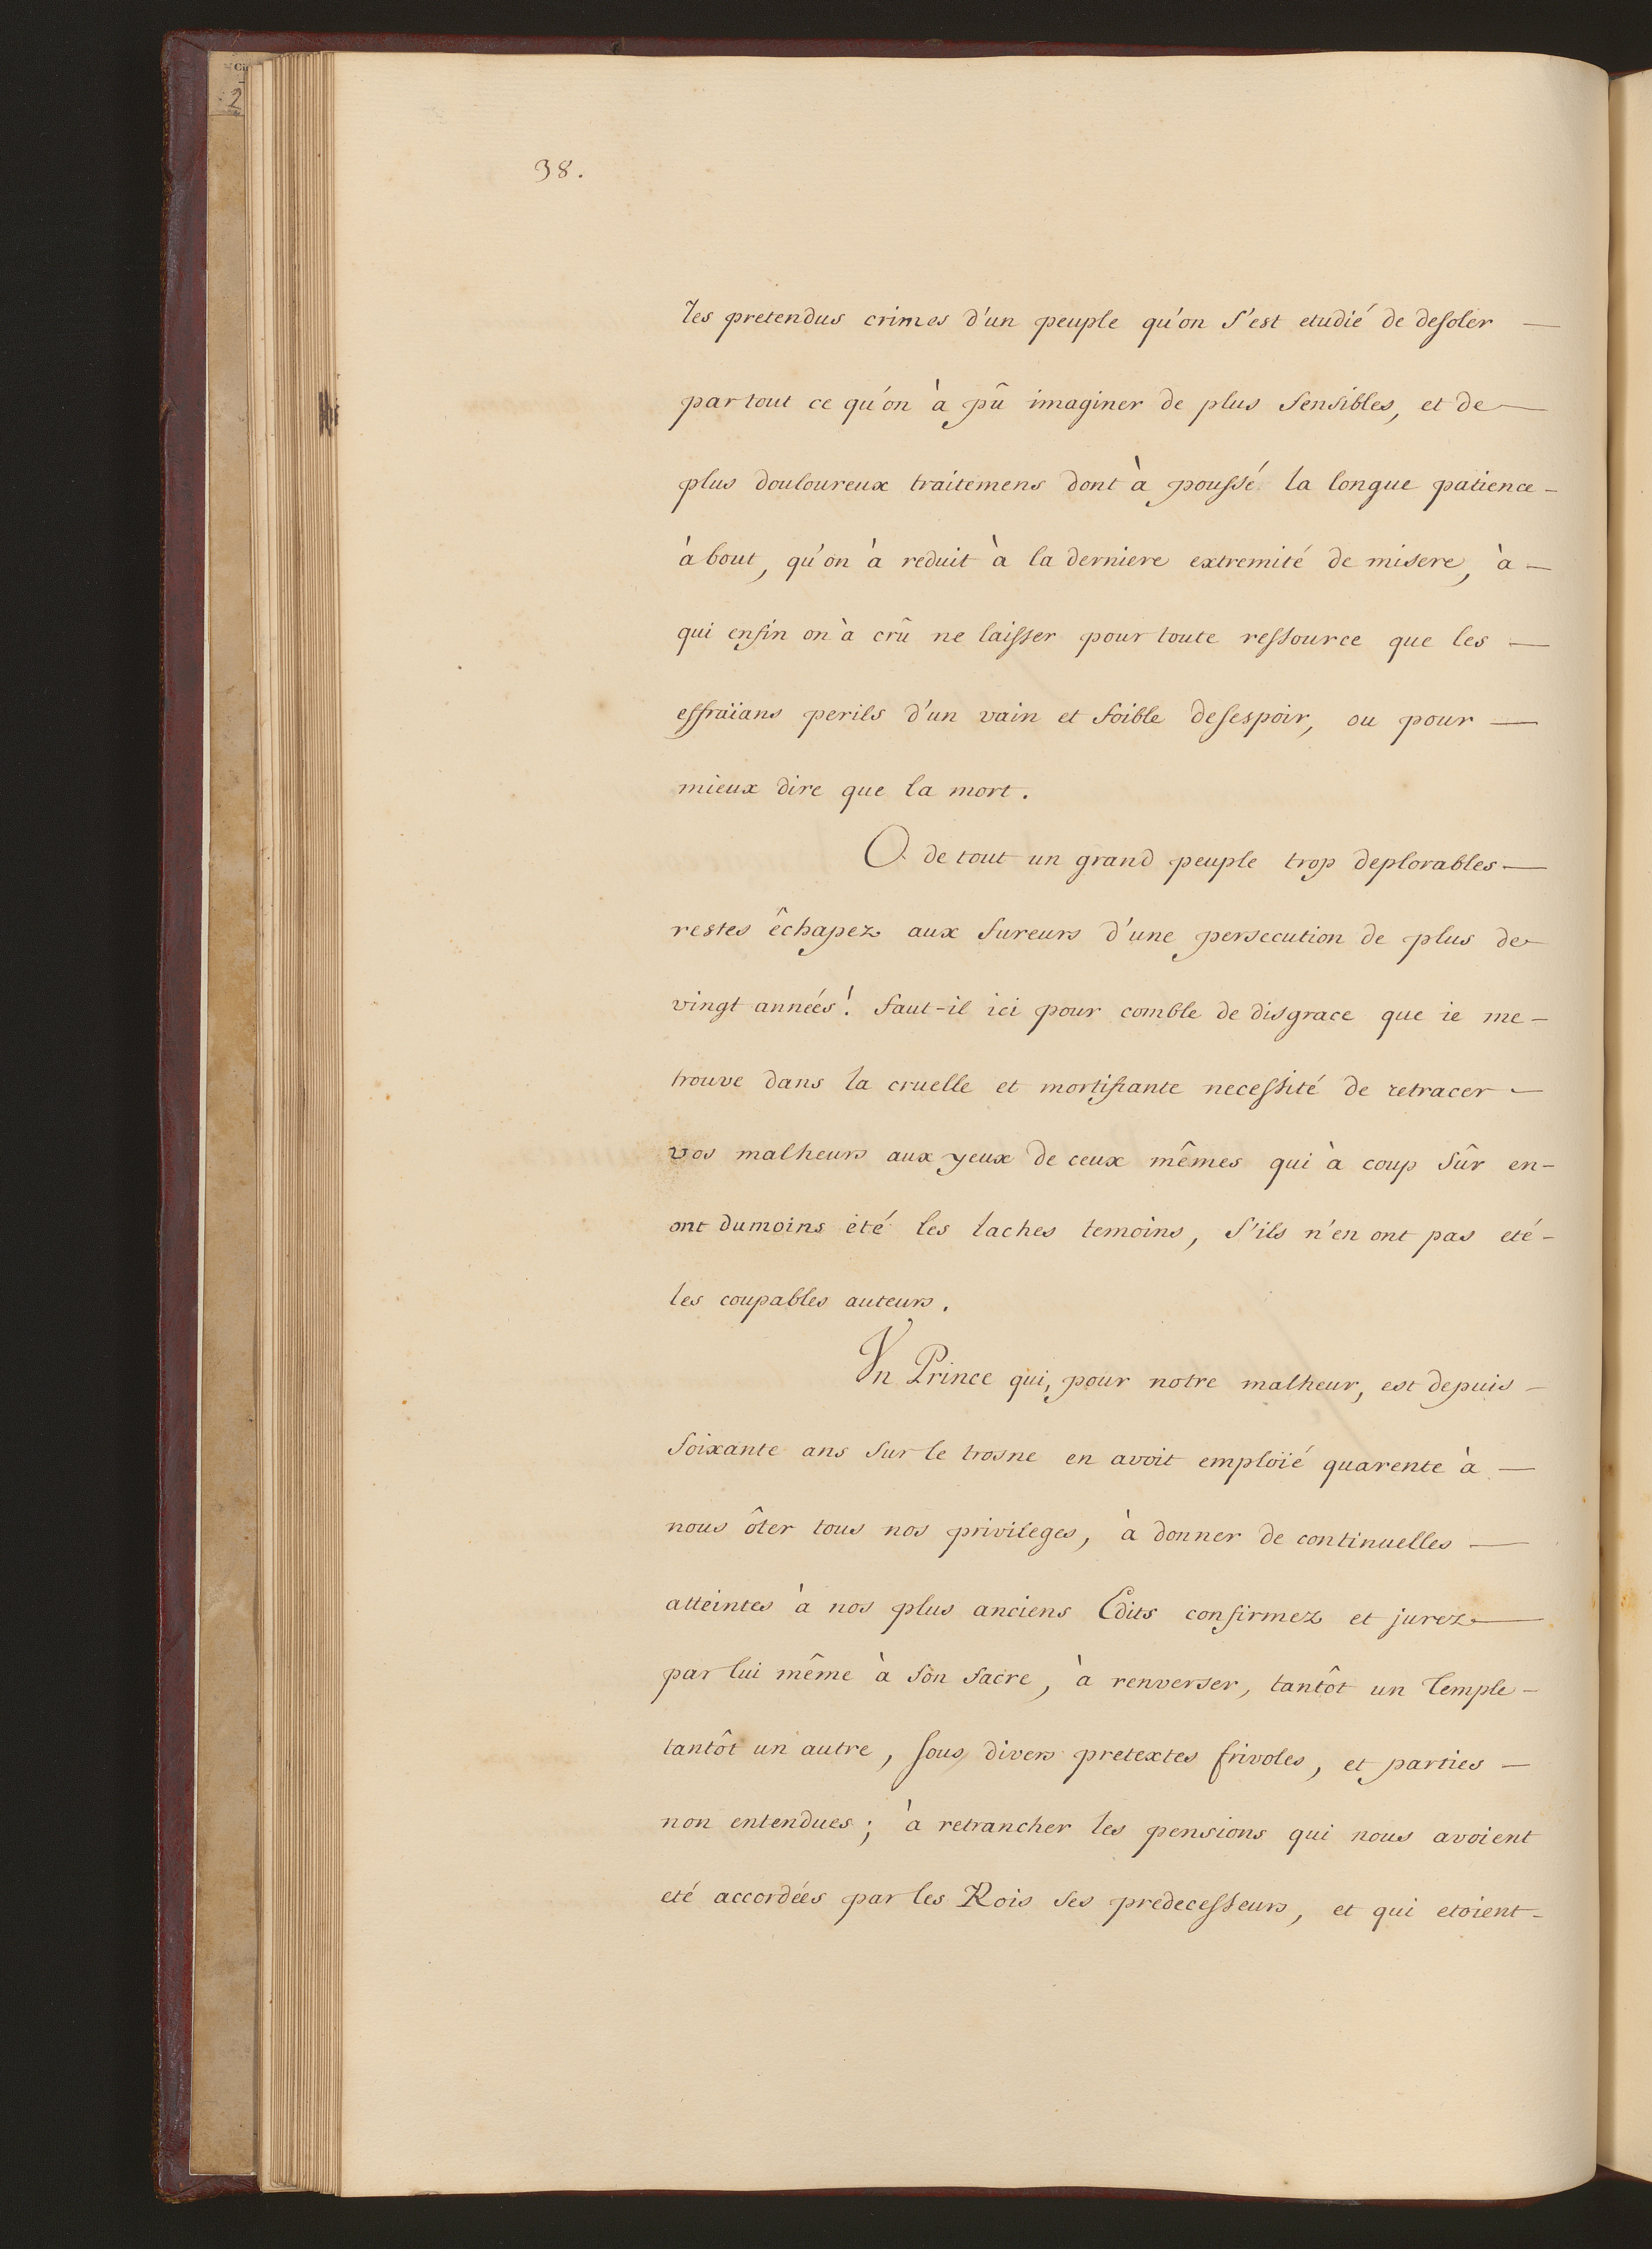 38.
les pretendus crimes d'un peuple qu'on s'est etudié de desoler —
partout ce qu'on à pû imaginer de plus sensibles, et de —
plus douloureux traitemens dont à poussé la longue patience -
à bout, qu'on à reduit à la derniere extremité de misere, à -
qui enfin on à crû ne laisser pour toute ressource que les —
effraïans perils d'un vain et foible desespoir, ou pour —
mieux dire que la mort.
O de tout un grand peuple trop deplorables —
restes êchapez aux fureurs d'une persecution de plus de
vingt années! faut-il ici pour comble de disgrace que ie me -
trouve dans la cruelle et mortifiante necessité de retracer -
vos malheurs aux yeux de ceux mêmes qui à coup sûr en -
ont dumoins été les laches temoins, s'ils n'en ont pas eté -
les coupables auteurs.
Vn Prince qui, pour notre malheur, est depuis -
soixante ans sur le trosne en avoit emploïé quarente à —
nous ôter tous nos privileges, à donner de continuelles —
atteintes à nos plus anciens Edits confirmez et jurez —
par lui même à son sacre, à renverser, tantôt un Temple -
tantôt un autre, sous divers pretextes frivoles, et parties —
non entendues; à retrancher les pensions qui nous avoient
eté accordées par les Rois ses predecesseurs, et qui etoient -